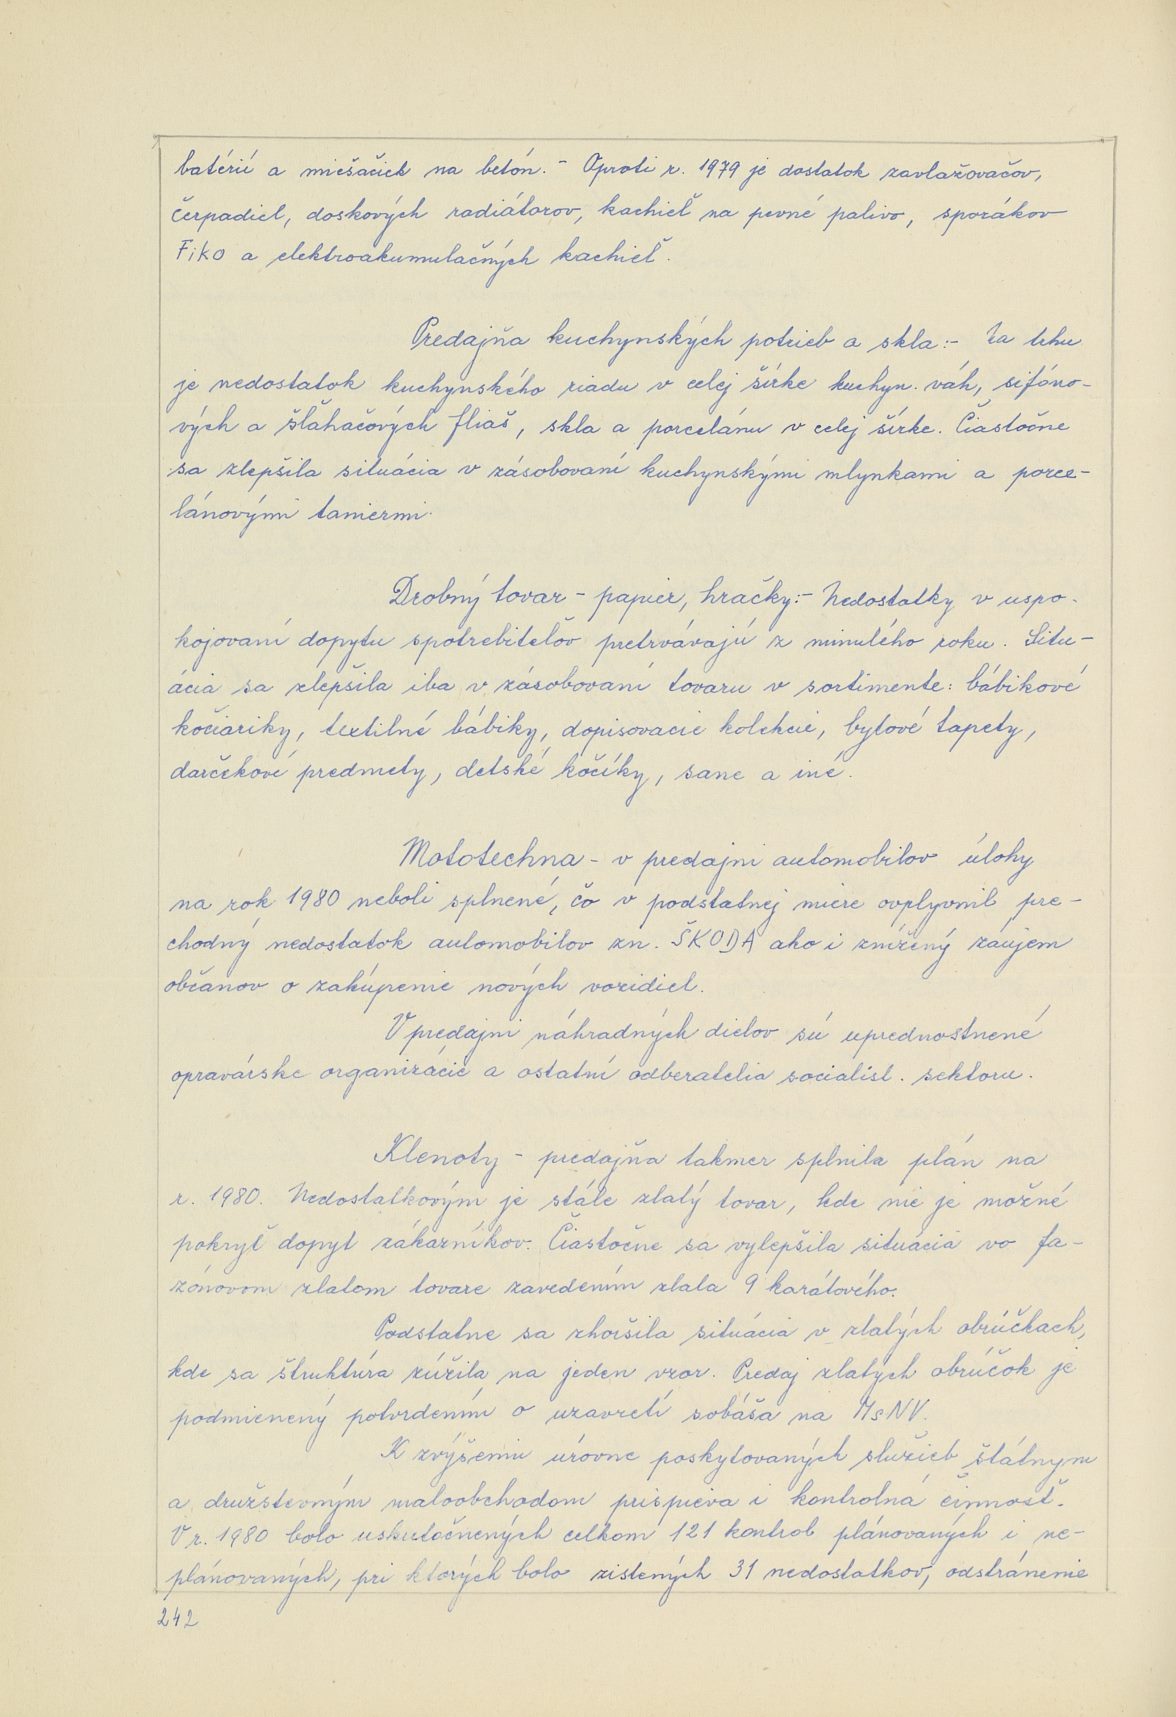 batérií a miešačiek na betón.- Oproti r. 1979 je dostatok zavlažovačov,
čerpadiel, doskových radiátorov, kachieľ na pevné palivo, sporákov
Fiko a elektroakumulačných kachieľ.
Predajňa kuchynských potrieb a skla:- Na trhu
je nedostatok kuchynského riadu v celej šírke kuchyn. váh, sifóno-
vých a šľahačových fliaš, skla a porcelánu v celej šírke. Čiastočne
sa zlepšila situácia v zásobovaní kuchynskými mlynkami a porce-
lánovými taniermi.
Drobný tovar - papier, hračky:- Nedostatky v uspo-
kojovaní dopytu spotrebiteľov pretrvávajú z minulého roku. Situ-
ácia sa zlepšila iba v zásobovaní tovaru v sortimente: bábikové
kočiariky, textilné bábiky, dopisovacie kolekcie, bytové tapety,
darčekové predmety, detské kočíky, sane a iné.
Mototechna - v predajni automobilov úlohy
na rok 1980 neboli splnené, čo v podstatnej miere ovplyvnil pre-
chodný nedostatok automobilov zn. ŠKODA ako i znížený záujem
občanov o zakúpenie nových vozidiel.
V predajni náhradných dielov sú uprednostnené
opravárske organizácie a ostatní odberatelia socialist. sektoru.
Klenoty - predajňa takmer splnila plán na
r. 1980. Nedostatkovým je stále zlatý tovar, kde nie je možné
pokryť dopyt zákazníkov. Čiastočne sa vylepšila situácia vo fa-
zónovom zlatom tovare zavedením zlata 9 karátového.
Podstatne sa zhoršila situácia v zlatých obrúčkach,
kde sa štruktúra zúžila na jeden vzor. Predaj zlatých obrúčok je
podmienený potvrdením o uzavretí sobáša na MsNV.
K zvýšeniu úrovne poskytovaných služieb štátnym
a družstevným maloobchodom prispieva i kontrolná činnosť.
V r. 1980 bolo uskutočnených celkom 121 kontrol plánovaných i ne-
plánovaných, pri ktorých bolo zistených 31 nedostatkov, odstránenie
242